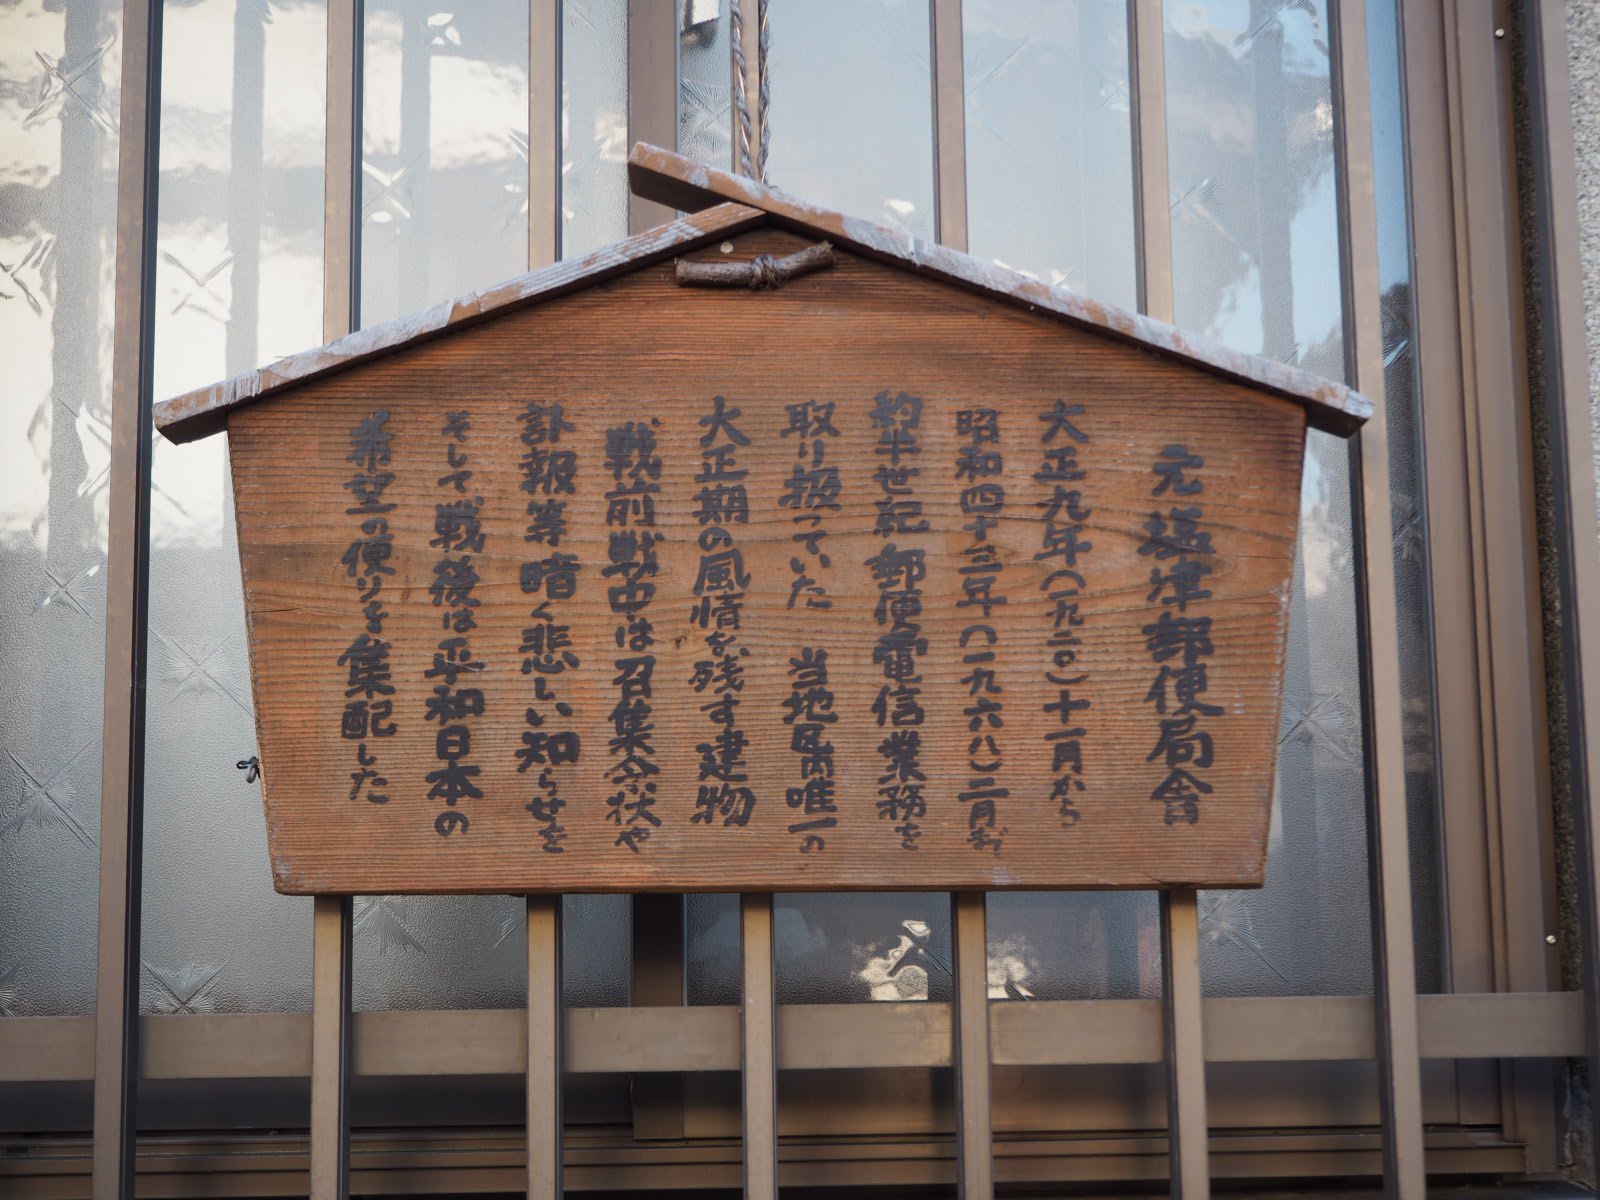 元塩津郵便局舎
大正九年(一九二〇)十一月から
昭和四十三年(一九六八)二月まで
約半世紀 郵便電信業務を
取り扱っていた 当地区内唯一の
大正期の風情を残す建物
戦前戦中は召集令状や
訃報等 暗く悲しい知らせを
そして戦後は平和日本の
希望の便りを集配した